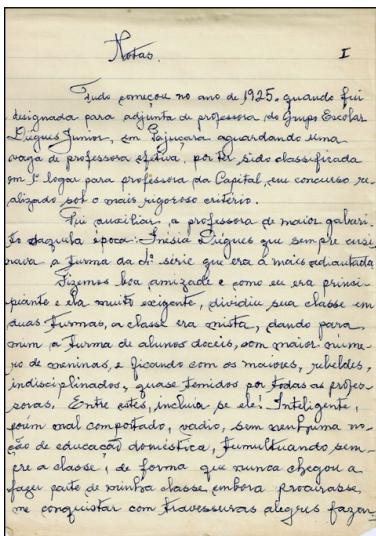 Notas. I
Tudo começou no ano de 1925. quando fui
designada para adjunta de professora do Grupo Escolar
Diégues Junior, em Pajuçara aguardando uma
vaga de professora efetiva, por ter sido classificada
em 1º logar para professora da Capital, em concurso re-
alizado sob o mais rigoroso critério.
Fui auxiliar, a professora de maior gabari-
to daquela época: Inésia Diégues que sempre ensi-
nava a turma da 4ª série que era a mais adiantada
Fizemos boa amizade e como eu era princi-
piante e ela muito exigente, dividiu sua classe em
duas turmas, a classe era mista, dando para
mim a turma de alunos doceis, com maior nume-
ro de meninas, e ficando com os maiores, rebeldes,
indisciplinados, quase temidos por todas as profes-
soras. Entre estes, incluia se ele! Inteligente,
porém mal comportado, vadio, sem nenhuma no-
ção de educação doméstica, tumultuando sem-
pre a classe, de forma que nunca chegou a
fazer parte de minha classe embora procurasse
me conquistar com travessuras alegres fazen-